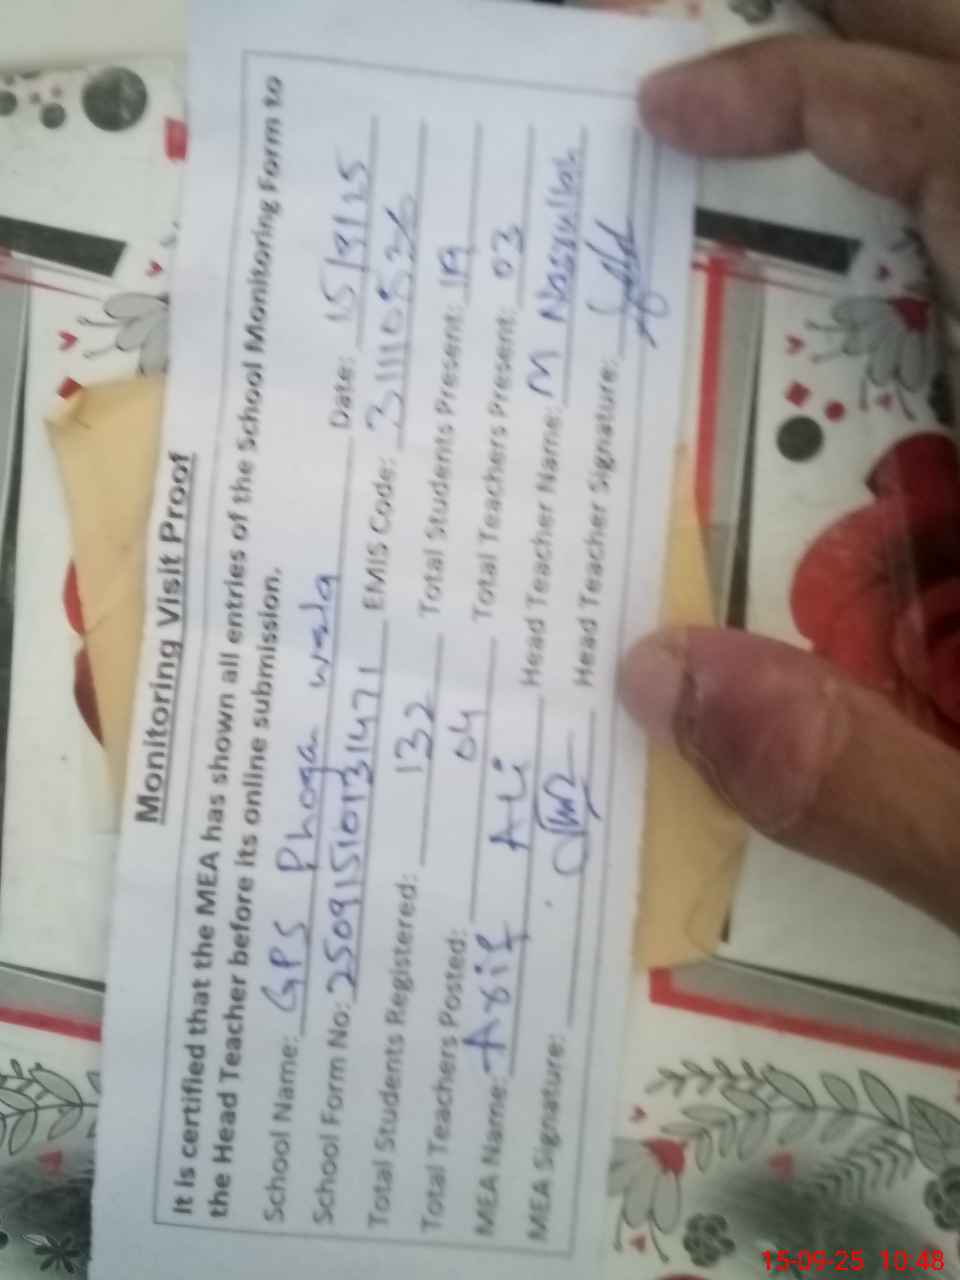 Monitoring Visit Proof
It is certified that the MEA has shown all entries of the School Monitoring Form to
the Head Teacher before its online submission.
School Name: GPS Phogan wala Date: 15/9/25
School Form No: 25091510131471 EMIS Code: 31110526
Total Students Registered: 132 Total Students Present: 19
Total Teachers Posted: 04 Total Teachers Present: 03
MEA Name: Asif Ali Head Teacher Name: M Nasrullah
MEA Signature: Head Teacher Signature:
15-09-25 10:48